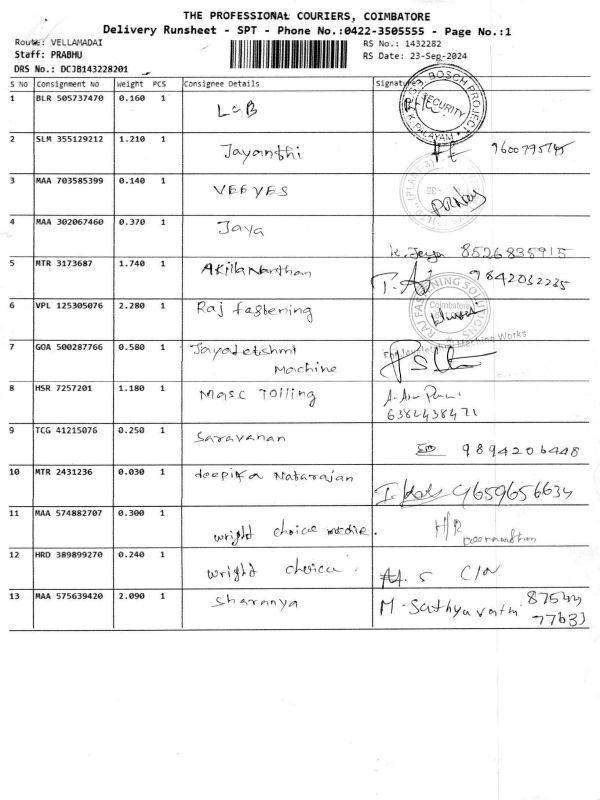 THE PROFESSIONAL COURIERS, COIMBATORE
Delivery Runsheet - SPT - Phone No.:0422-3505555 - Page No.:1
Route: VELLAMADAI
RS No.: 1432282
Staff: PRABHU
RS Date: 23-Sep-2024
DRS No.: DCJB143228201
S No Consignment No Weight PCS Consignee Details Signature
1 BLR 505737470 0.160 1 LGB
BOSCH PROJECT SECURITY K. PALAYAM
2 SLM 355129212 1.210 1 Jayanthi
3 MAA 703585399 0.140 1 VEEYES
4 MAA 302067460 0.370 1 Jaya K. Jeya 8526835915
5 MTR 3173687 1.740 1 Akilla Narthan 9842032235
6 VPL 125305076 2.280 1 Raj fastening
RAJ FASTENING SOLUTIONS Coimbatore
7 GOA 500287766 0.580 1 Jayaletshmi
Machine
Machining Works
8 HSR 7257201 1.180 1 Masc Tolling
6382438471
9 TCG 41215076 0.250 1 Saravanan 9894206448
10 MTR 2431236 0.030 1 deepika Natarajan 9659656634
11 MAA 574882707 0.300 1 wright choice
12 HRD 389899270 0.240 1 wright choice C/N
13 MAA 575639420 2.090 1 Sharanya M. Sathyavathi 87544
77633